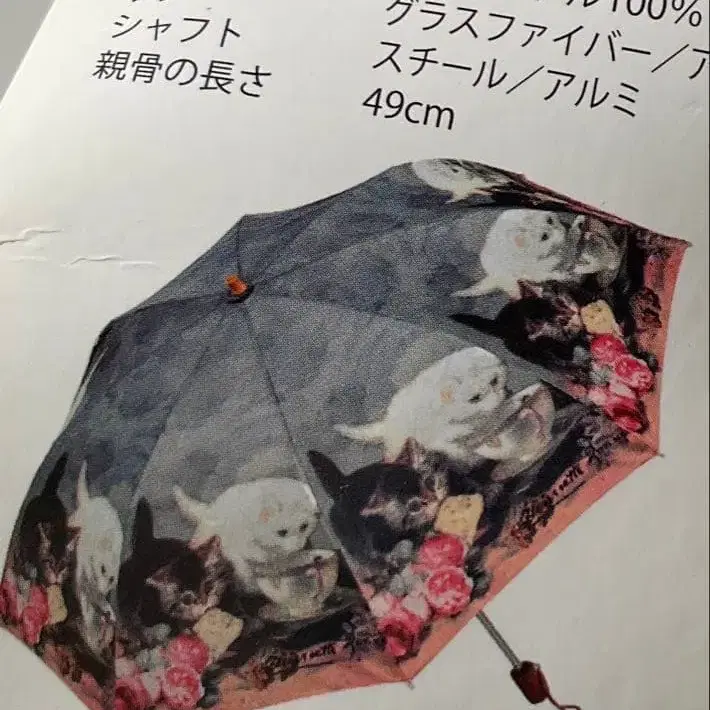 シャフト
親骨の長さ
100%
グラスファイバー／ア
スチール／アルミ
49cm